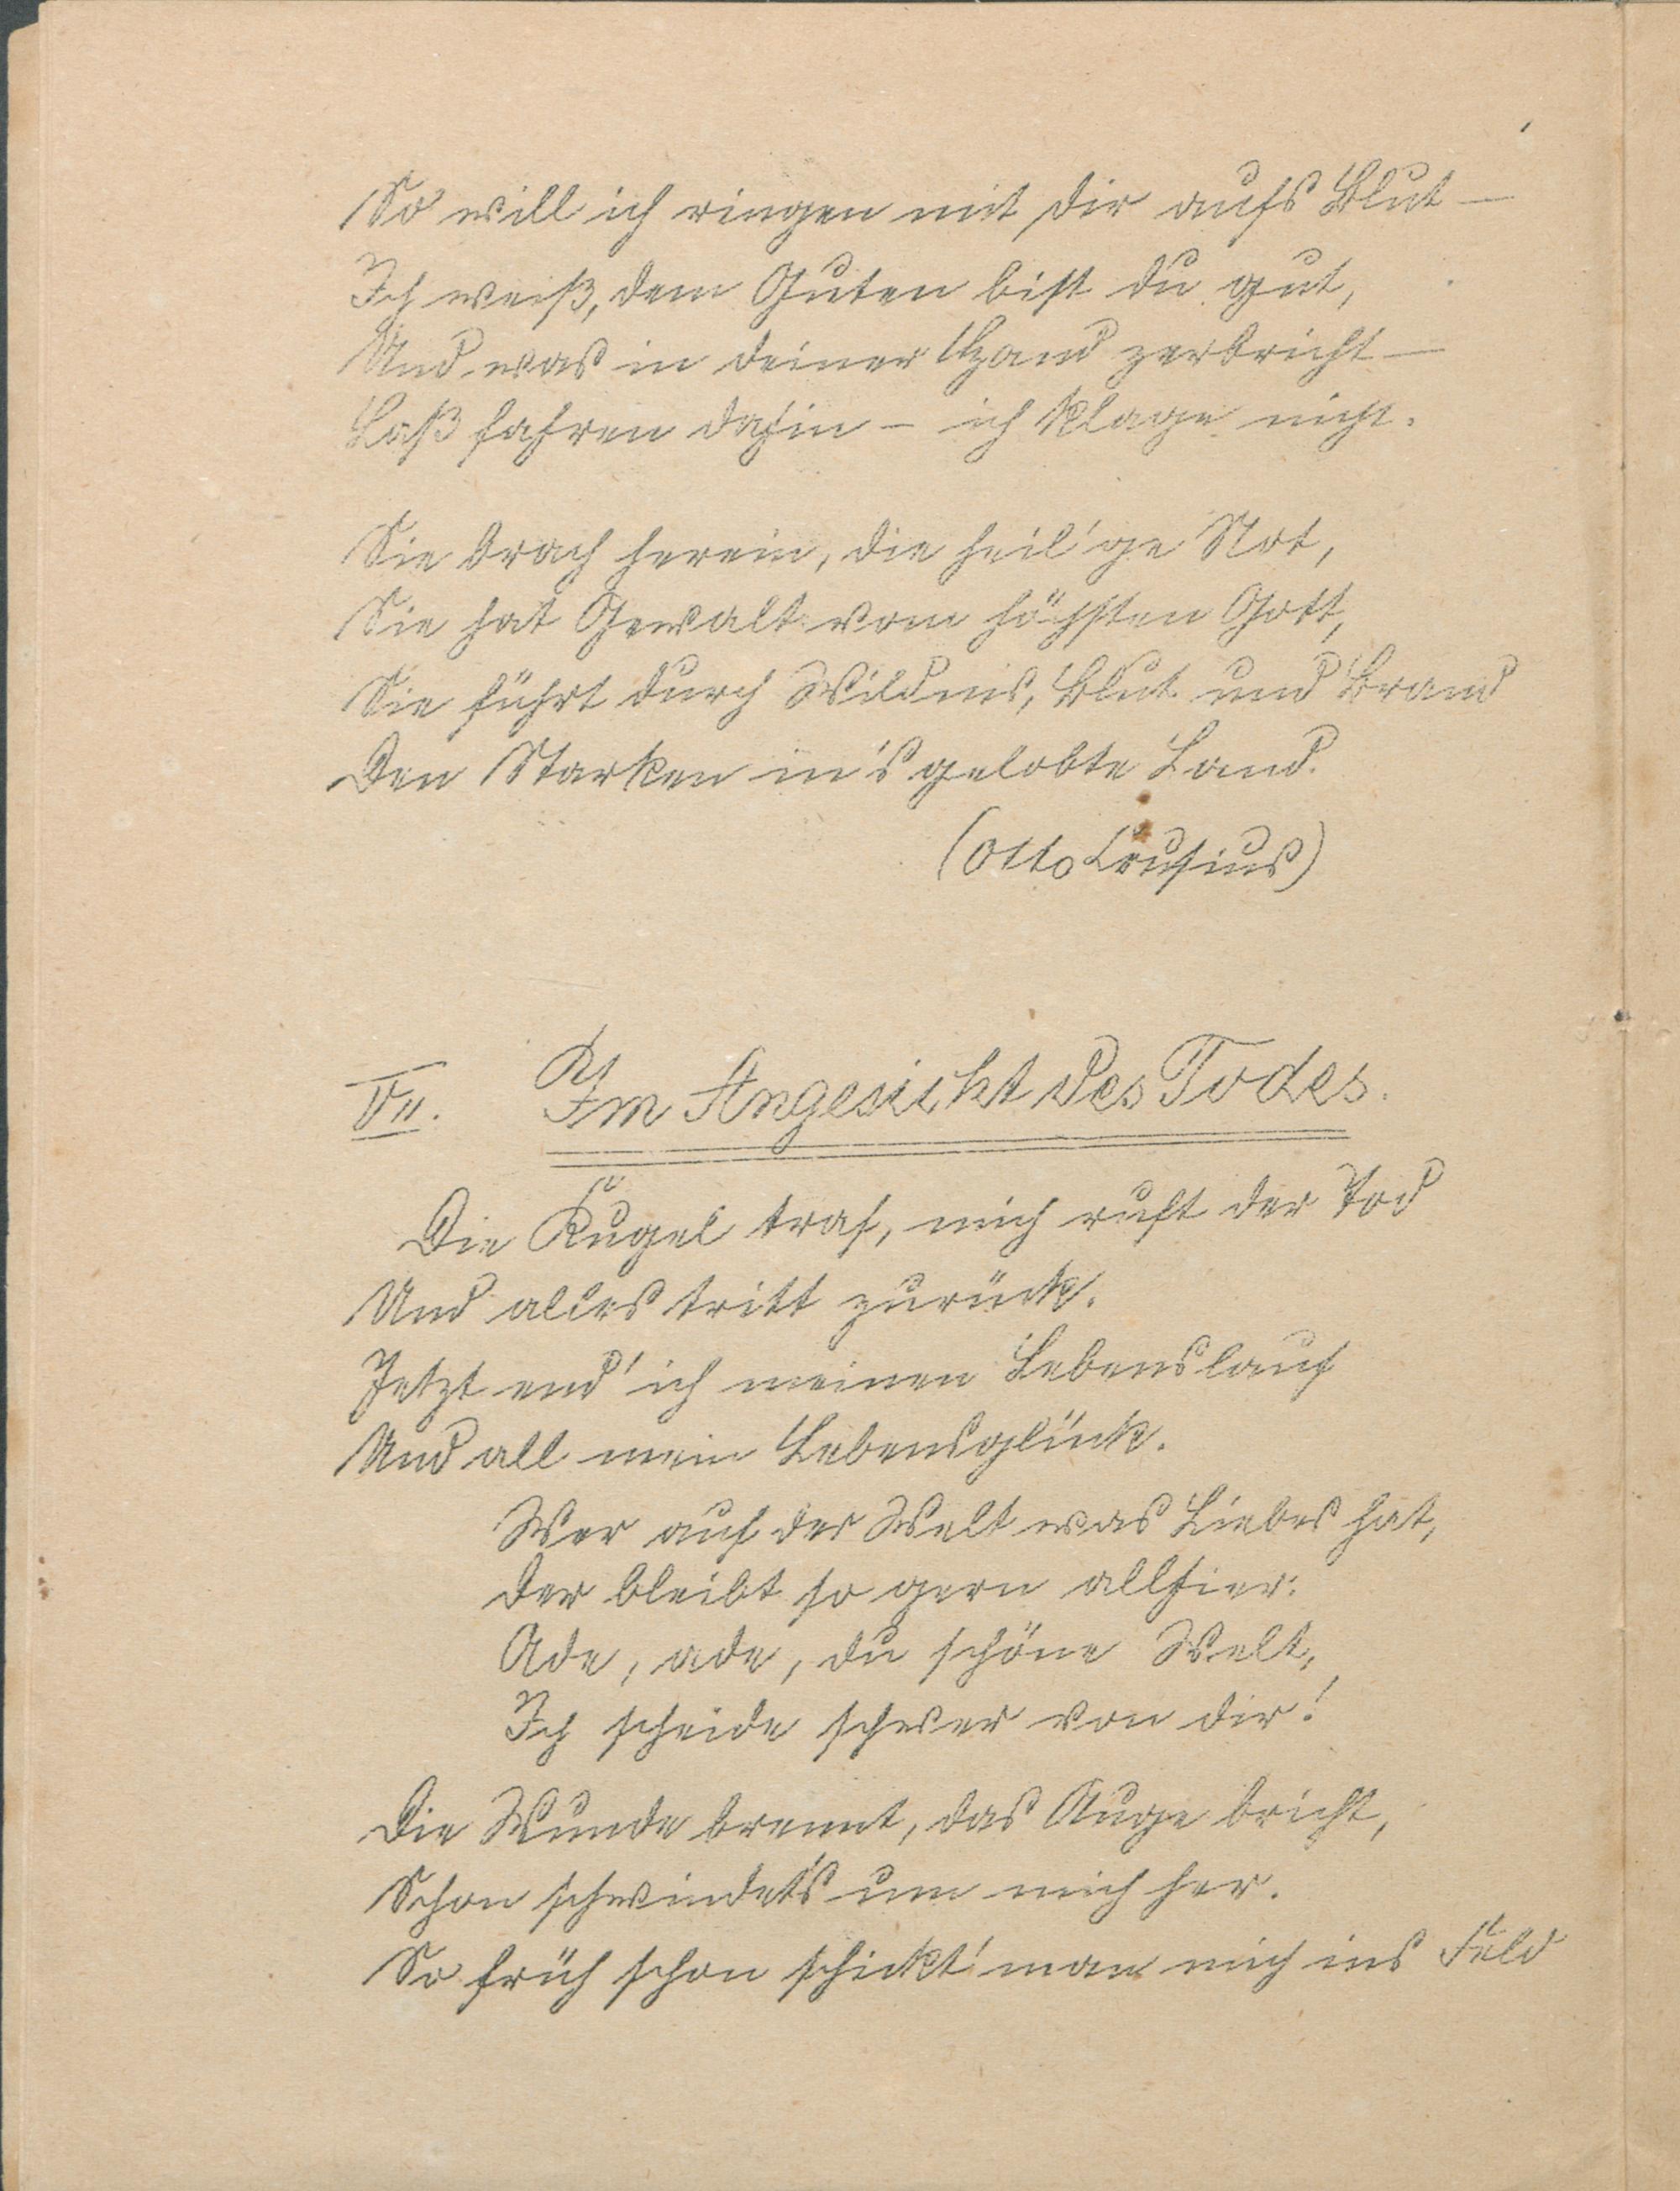 So will ich ringen mit dir aufs Blut –
Ich weiß, dem Guten bist du gut,
Und was in deiner Hand zerbricht –
Laß fahren dahin – ich klage nicht.
Sie brach herein, die heil'ge Not,
Sie hat Gewalt vom höchsten Gott,
Sie führt durch Wildnis, Blut und Brand
Den Starken in's gelobte Land.
(Otto Crusius)
VII. Im Angesicht des Todes.
Die Kugel traf, mich ruft der Tod
Und alles tritt zurück.
Jetzt end' ich meinen Lebenslauf
Und all mein Lebensglück.
Wer auf der Welt was Liebes hat,
Der bleibt so gern allhier:
Ade, ade, du schöne Welt,
Ich scheide schwer von dir!
Die Wunde brennt, das Auge bricht,
Schon schwindet's um mich her.
So früh schon schickt' man mich ins Feld